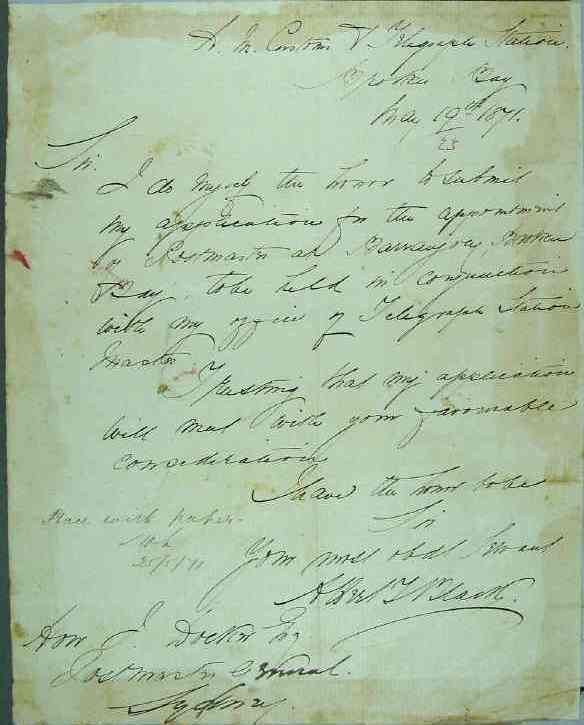 H. M. Customs & Telegraph Station.
Broken Bay
May 19th 1871.
23
Sir.
I do myself the honor to submit
my application for the appointment
of Postmaster at Barranjoey, Broken
Bay, to be held in conjunction
with my office of Telegraph Station
Master.
Trusting that my application
will meet with your favourable
consideration
I have the honor to be
Sir
Your most obdt Servant
Albert T Black.
Place with papers.
25/5/71
Hon J. Docker Esq
Postmaster General.
Sydney.